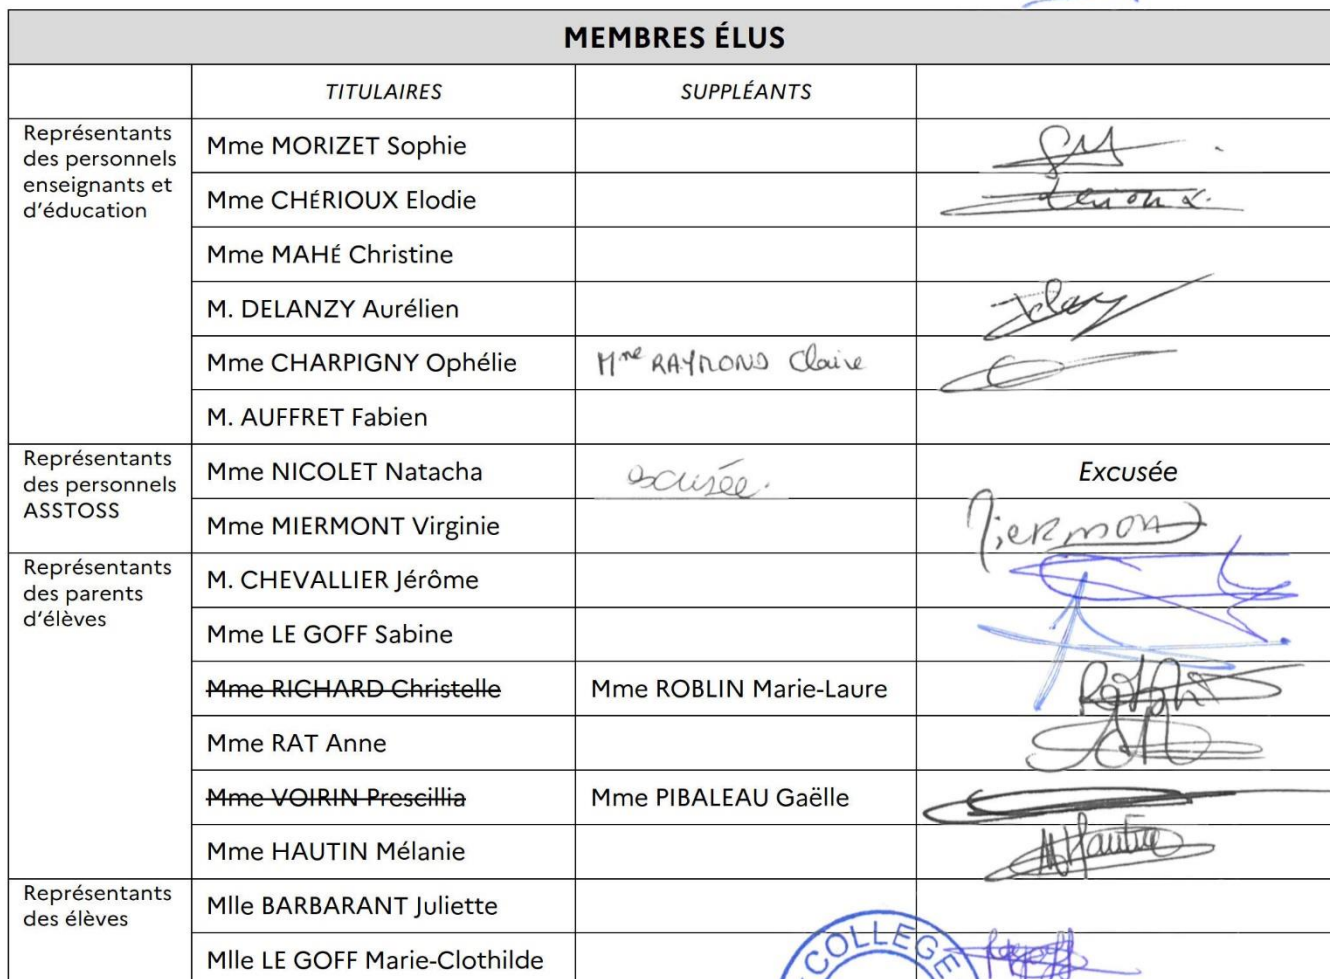 MEMBRES ÉLUS
TITULAIRES SUPPLÉANTS
Représentants des personnels enseignants et d'éducation
Mme MORIZET Sophie
Mme CHÉRIOUX Elodie
Mme MAHÉ Christine
M. DELANZY Aurélien
Mme CHARPIGNY Ophélie Mme RAYMOND Claire
M. AUFFRET Fabien
Représentants des personnels ASSTOSS
Mme NICOLET Natacha excusée. Excusée
Mme MIERMONT Virginie Miermont
Représentants des parents d'élèves
M. CHEVALLIER Jérôme
Mme LE GOFF Sabine
Mme RICHARD Christelle Mme ROBLIN Marie-Laure
Mme RAT Anne
Mme VOIRIN Prescillia Mme PIBALEAU Gaëlle
Mme HAUTIN Mélanie
Représentants des élèves
Mlle BARBARANT Juliette
Mlle LE GOFF Marie-Clothilde
COLLEGE